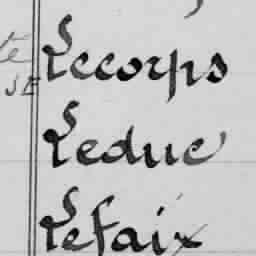 te Lecorps
SE
Leduc
Lefaix